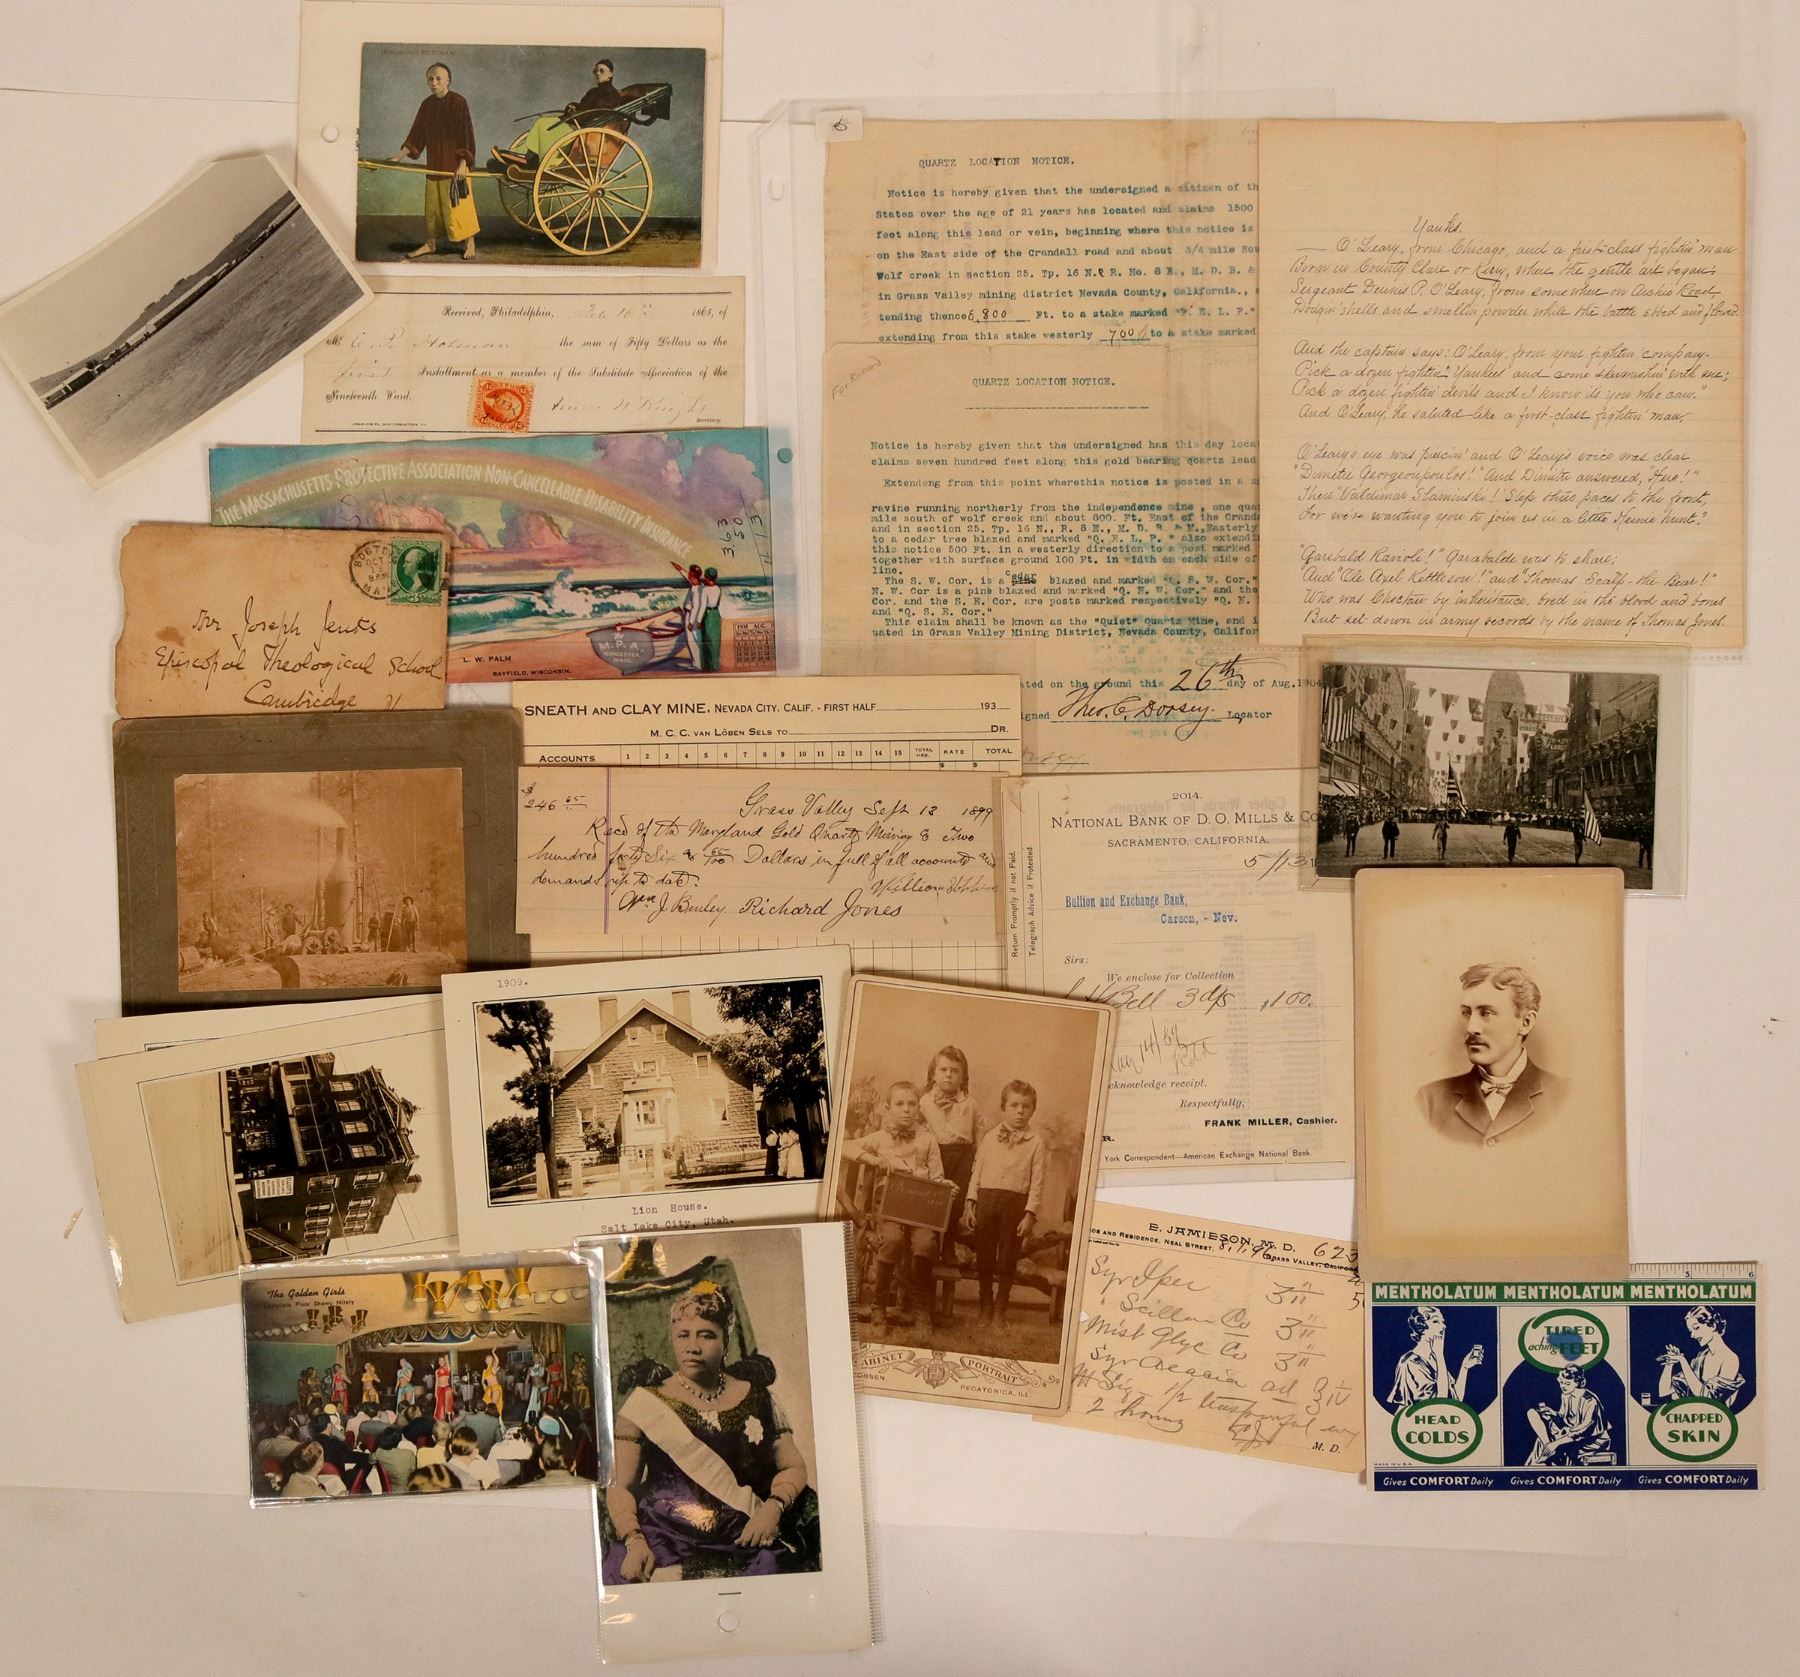 Received, Philadelphia, Feb 16th 1865, of
Mr the sum of Fifty Dollars as the
first Installment as a member of the Substitute Association of the
Nineteenth Ward.
Secretary.
THE MASSACHUSETTS PROTECTIVE ASSOCIATION NON-CANCELLABLE DISABILITY INSURANCE
363
50
1113
M.P.A.
WORCESTER
MASS.
1935 AUG.
L. W. PALM
BAYFIELD, WISCONSIN.
BOSTON
OCT
8 AM
MASS
Mr Joseph Jenks
Episcopal Theological School
Cambridge
6
QUARTZ LOCATION NOTICE.
Notice is hereby given that the undersigned a citizen of th
States over the age of 21 years has located and claims 1500
feet along this lead or vein, beginning where this notice is
on the East side of the Crandall road and about 3/4 mile Sou
Wolf creek in section 25. Tp. 16 N. R. No. 8 E., M. D. B. &
in Grass Valley mining district Nevada County, California.,
tending thence 800 Ft. to a stake marked "P. E. L. P."
extending from this stake westerly 700 to a stake marked
For Record
QUARTZ LOCATION NOTICE.
Notice is hereby given that the undersigned has this day loca
claims seven hundred feet along this gold bearing quartz lead
Extendeng from this point wherethis notice is posted in a
ravine running northerly from the independence mine , one qua
mile south of wolf creek and about 800. Ft. East of the Crand
and in section 25. Tp. 16 N., R. 8 E., M. D. B & M., Easterly
to a cedar tree blazed and marked "Q. E. L. P. " also extendi
this notice 500 Ft. in a westerly direction to a post marked
together with surface ground 100 Ft. in width on each side of
line.
The S. W. Cor. is a cedar blazed and marked "Q. S. W. Cor."
N. W. Cor is a pine blazed and marked "Q. N. W. Cor." and the
Cor. and the S. E. Cor. are posts marked respectively "Q. N.
and "Q. S. E. Cor."
This claim shall be known as the "Quiet" Quartz Mine, and i
uated in Grass Valley Mining District, Nevada County, Califor
ated on the ground this 26th day of Aug. 1904
igned Theo. C. Dorsey. Locator
Yanks.
O'Leary, from Chicago, and a first-class fightin' man
Born in County Clare or Kerry, where the gentle art began;
Sergeant Dennis P. O'Leary, from somewhere on Archie Road,
Dodgin' shells and smellin powder while the battle ebbed and flowed.
And the captain says: O'Leary, from your fightin' company-
Pick a dozen fightin' Yankees and come skirmishin' with me;
Pick a dozen fightin' devils and I know its you who can."
And O'Leary, he saluted like a first-class fightin' man.
O'Leary's eye was piercin' and O'Leary's voice was clear
"Dimitri Georgeoupoulos!" And Dimitri answered, "Here!"
Then "Valdimar Slaminsky! Step three paces to the front,
For we're wanting you to join us in a little Heinie hunt."
"Garibald Ravioli!" Garabalde was to share;
"And "Ole Axel Kettleson!" and "Thomas Scalp-the-Bear!"
Who was Choctaw by inheritance, bred in the blood and bones
But set down in army records by the name of Thomas Jones.
SNEATH AND CLAY MINE, NEVADA CITY, CALIF. - FIRST HALF 193
M. C. C. VAN LÖBEN SELS TO DR.
ACCOUNTS 1 2 3 4 5 6 7 8 9 10 11 12 13 14 15 TOTAL HRS. RATE TOTAL
$ $
$246 65 Grass Valley Sept 13 1899
Recd of the Maryland Gold Quartz Mining Co Two
hundred forty Six & 65/100 Dollars in full of all accounts and
demands up to date.
Richard Jones
2014.
NATIONAL BANK OF D. O. MILLS & CO
SACRAMENTO, CALIFORNIA.
5/13
Cipher Words for Telegrams
Return Promptly if not Paid.
Telegraph Advice if Protested
Bullion and Exchange Bank,
Carson, - Nev.
Sirs:
We enclose for Collection
Bell 3 d/s $100.
cknowledge receipt.
Respectfully,
FRANK MILLER, Cashier.
R.
York Correspondent—American Exchange National Bank.
1909.
Lion House.
Salt Lake City, Utah.
CABINET PORTRAIT
PECATONICA, ILL.
The Golden Girls
Complete Floor Shows Nitely
E. JAMIESON, M. D.
ICE AND RESIDENCE, NEAL STREET. GRASS VALLEY, CALIFOR
M. D.
5 6
MENTHOLATUM MENTHOLATUM MENTHOLATUM
HEAD
COLDS
TIRED
aching
FEET
CHAPPED
SKIN
MADE IN U.S.A.
Gives COMFORT Daily Gives COMFORT Daily Gives COMFORT Daily